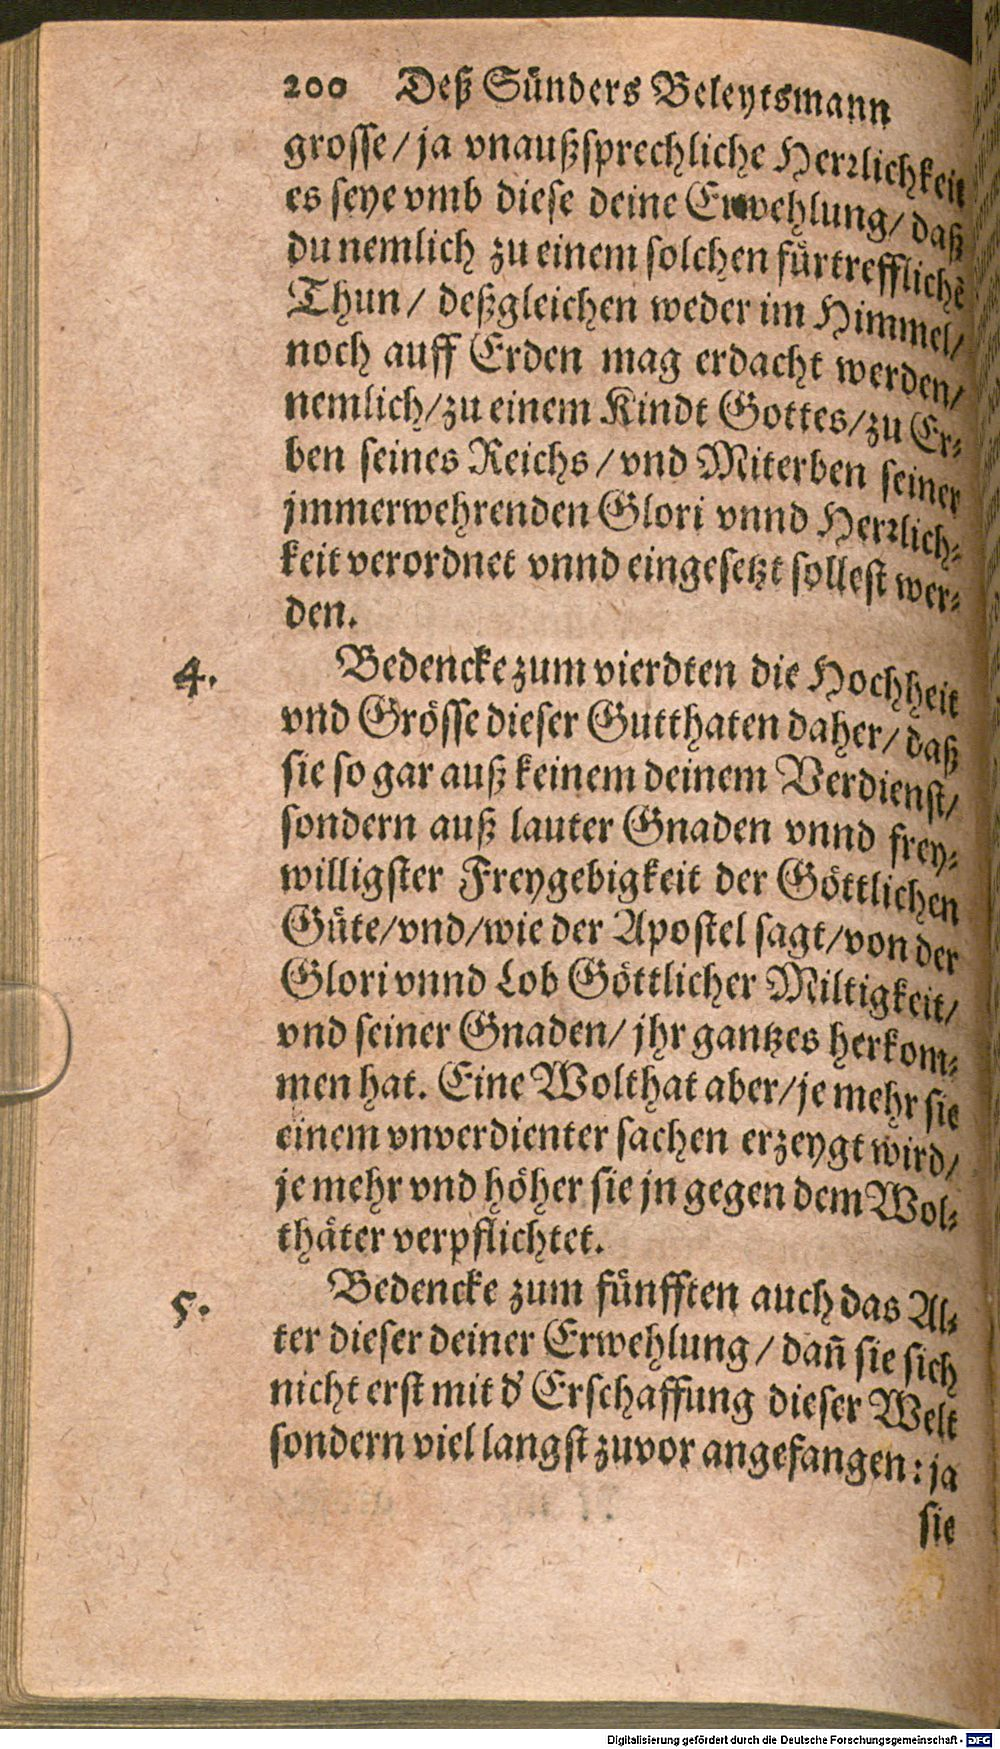 200 Deß Sünders Beleytsmann
grosse/ ja vnaußsprechliche Herꝛlichkeit
es seye vmb diese deine Erwehlung/ daß
du nemlich zu einem solchen fürtrefflichẽ
Thun/ deßgleichen weder im Himmel/
noch auff Erden mag erdacht werden/
nemlich/ zu einem Kindt Gottes/ zu Er-
ben seines Reichs/ vnd Miterben seiner
jmmerwehrenden Glori vnnd Herꝛlich-
keit verordnet vnnd eingesetzt sollest wer-
den.
4. Bedencke zum vierdten die Hochheit
vnd Grösse dieser Gutthaten daher/ daß
sie so gar auß keinem deinem Verdienst/
sondern auß lauter Gnaden vnnd frey-
willigster Freygebigkeit der Göttlichen
Güte/ vnd/ wie der Apostel sagt/ von der
Glori vnnd Lob Göttlicher Miltigkeit/
vnd seiner Gnaden/ jhr gantzes herkom-
men hat. Eine Wolthat aber/ je mehr sie
einem vnverdienter sachen erzeygt wird/
je mehr vnd höher sie jn gegen dem Wol-
thäter verpflichtet.
5. Bedencke zum fünfften auch das Al-
ter dieser deiner Erwehlung/ dañ sie sich
nicht erst mit d' Erschaffung dieser Welt
sondern viel langst zuvor angefangen: ja
sie
Digitalisierung gefördert durch die Deutsche Forschungsgemeinschaft - DFG